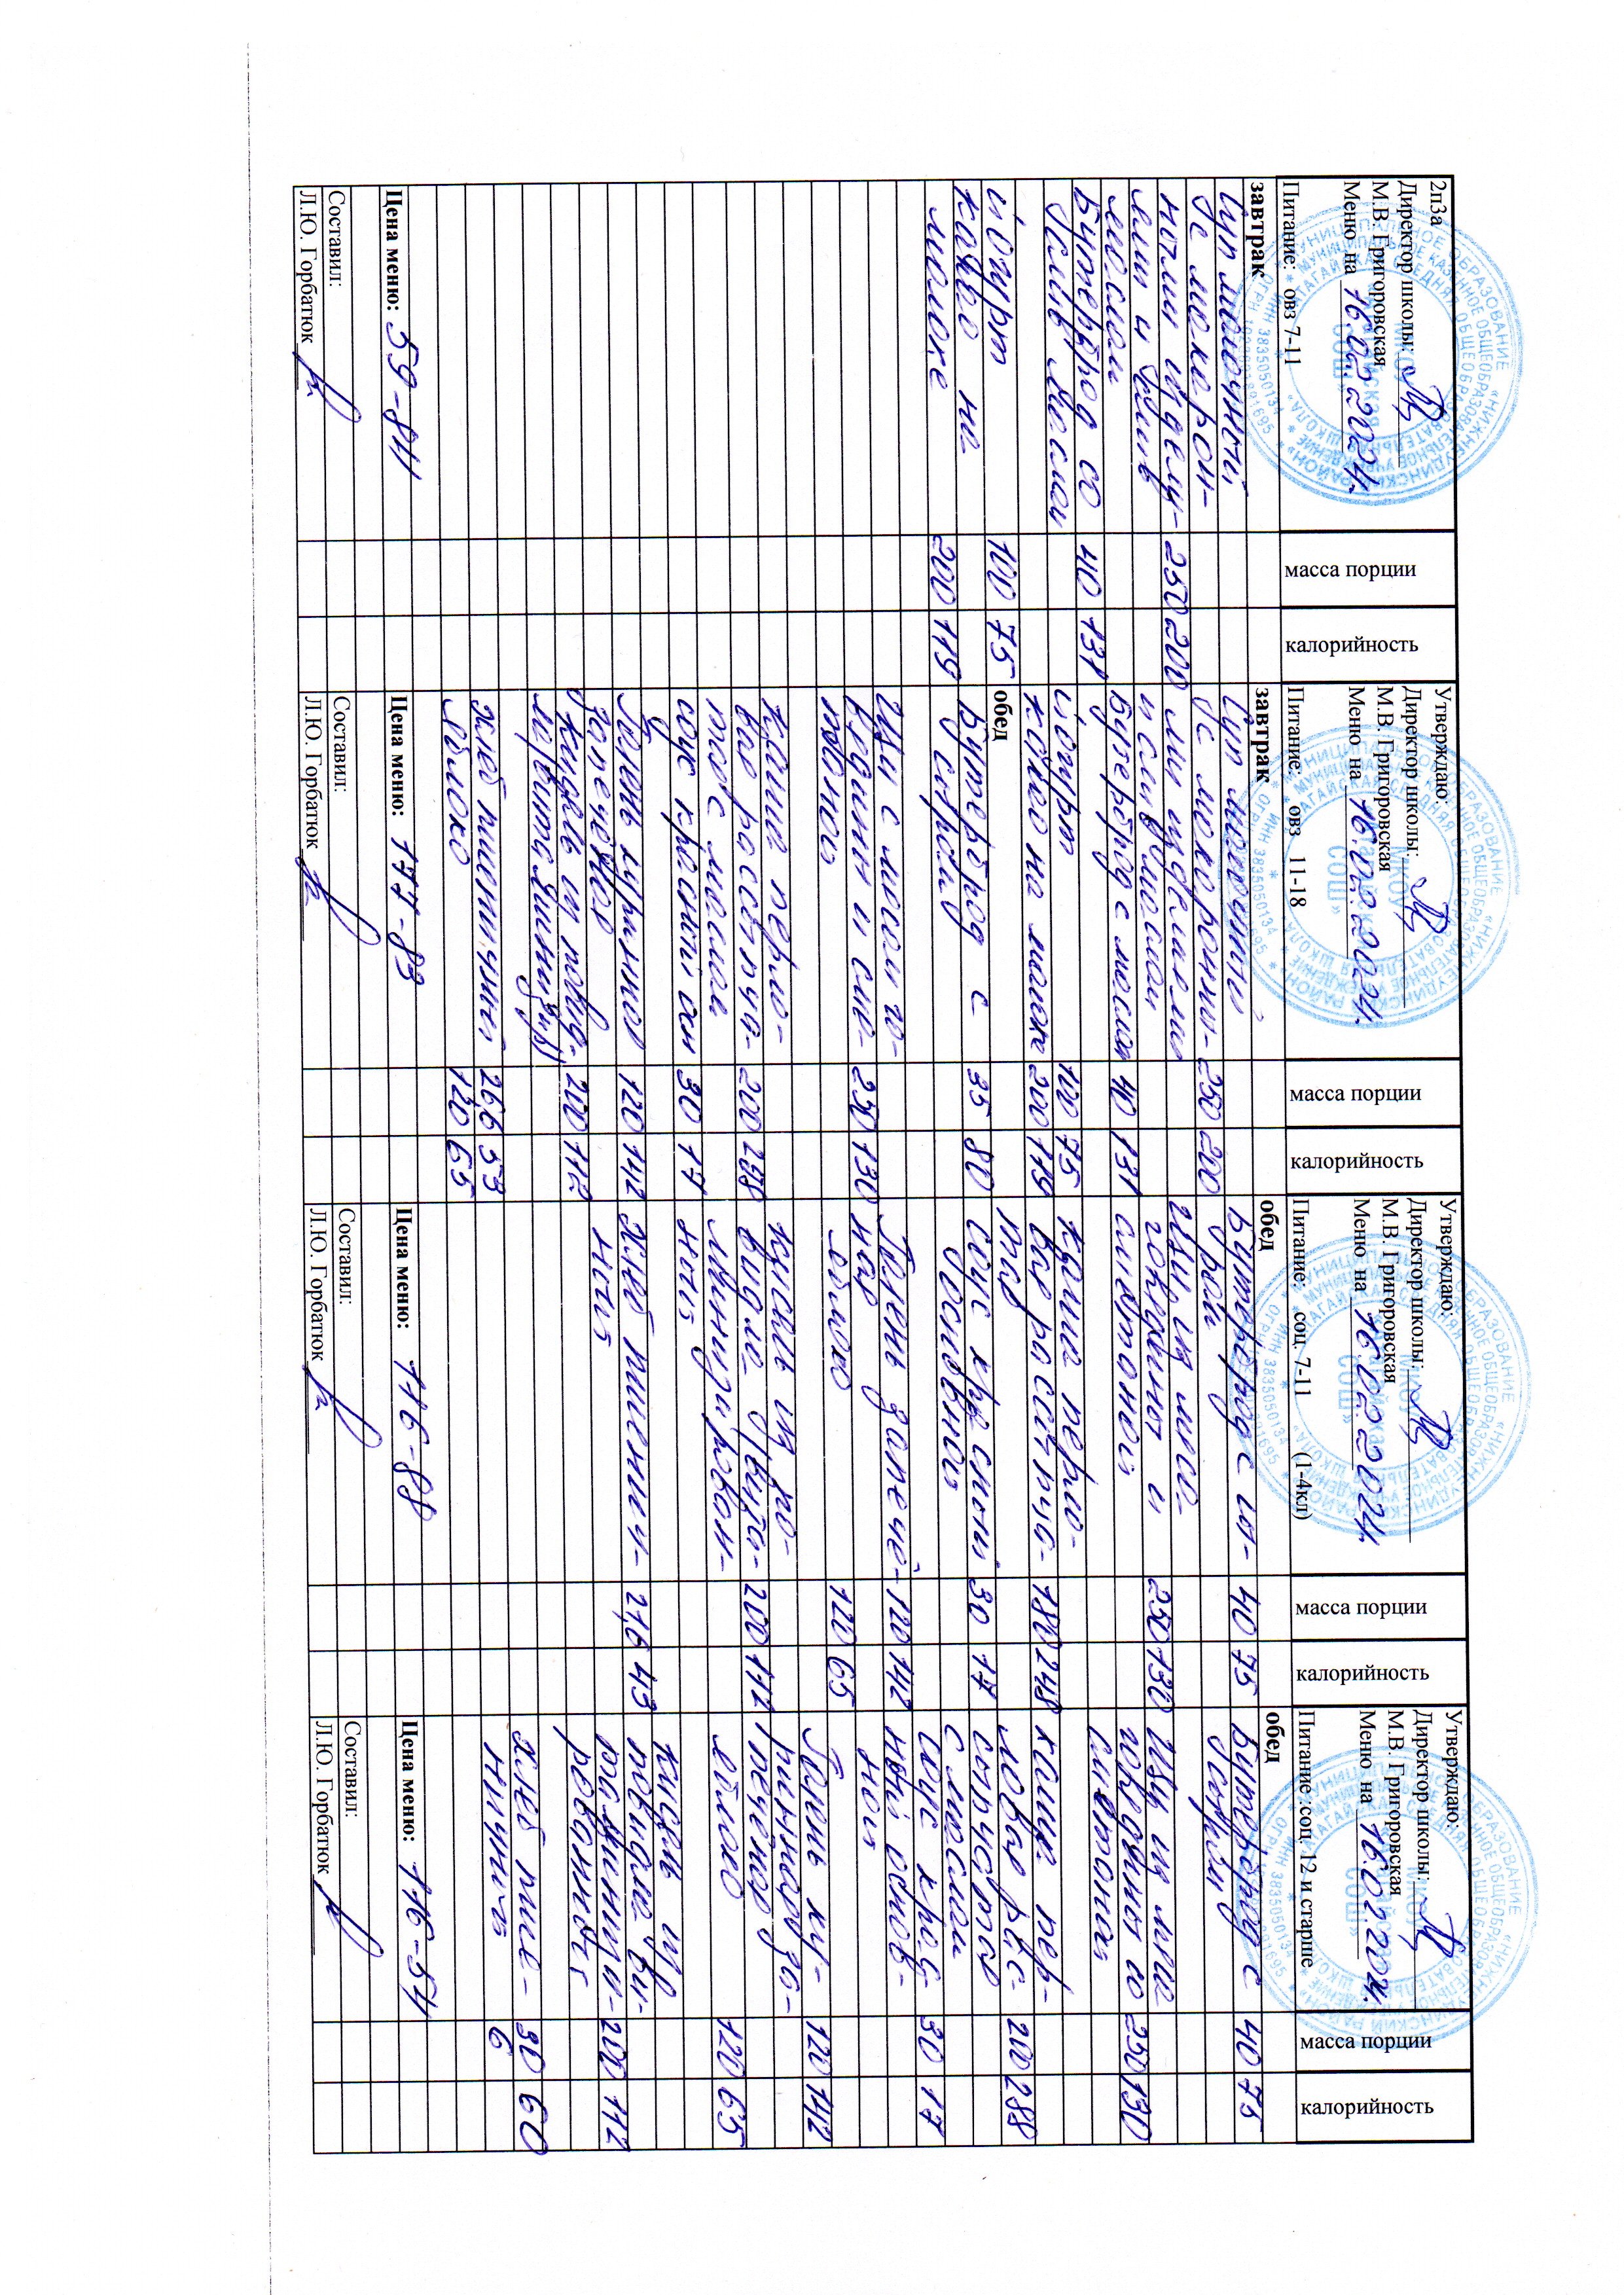 2п3а
Директор школы:
М.В. Григоровская
Меню на 16.02.2024.
Питание: овз 7-11
масса порции
калорийность
завтрак
Суп молочный
с макарон-
ными издели-
ями и слив
маслом 250 200
Бутерброд со
слив маслом 40 131
йогурт 100 75
какао на
молоке 200 119
Цена меню: 59-84
Составил:
Л.Ю. Горбатюк
Утверждаю:
Директор школы:
М.В. Григоровская
Меню на 16.02.2024.
Питание: овз 11-18
масса порции
калорийность
завтрак
Суп молочный
с макаронны-
ми изделиями 250 200
и слив маслом
Бутерброд с маслом 40 131
йогурт 100 75
какао на молок 200 119
обед
Бутерброд с
сыром 35 80
Щи с мясом го-
вядины и сме-
таной 250 130
Каша перло-
вая рассыпча-
тая с маслом 200 288
соус красный осн 30 17
Голень куриная
запечёная 120 142
кисель из повид.
(витаминизир) 200 112
хлеб пшеничный 26,6 53
яблоко 120 65
Цена меню: 177-83
Составил:
Л.Ю. Горбатюк
Утверждаю:
Директор школы:
М.В. Григоровская
Меню на 16.02.2024.
Питание: соц. 7-11 (1-4кл)
масса порции
калорийность
обед
Бутерброд с ик-
рой 40 75
Щи из мяса
говядины и
сметаной 250 130
Каша перло-
вая рассыпча-
тая 180 248
соус красный
основной 30 17
Голень запечё-
ная 120 142
яблоко 120 65
кисель из по-
видло (вита-
минизирован-
ный 200 112
Хлеб пшенич-
ный 21,6 43
Цена меню: 116-88
Составил:
Л.Ю. Горбатюк
Утверждаю:
Директор школы:
М.В. Григоровская
Меню на 16.02.2024.
Питание :соц. 12 и старше
масса порции
калорийность
обед
Бутерброд с 40 75
Щи из мяса
говядины со
сметаной 250 130
каша пер-
ловая рас-
сыпчатая 200 288
с маслом
соус крас-
ный основ-
ной 30 17
Голень ку-
риная за-
печёная 120 142
яблоко 120 65
кисель из
повидло ви-
таминизи-
рованный 200 112
хлеб пше-
ничный 30 60
6
Цена меню: 116-54
Составил:
Л.Ю. Горбатюк